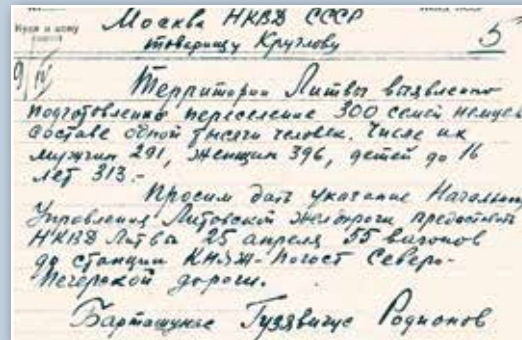 Москва НКВД СССР
Куда и кому
товарищу Круглову
5
9/IV
Территории Литвы выявленно
подготовленно переселение 300 семей немцев
составе одной тысячи человек. Числе их
мужчин 291, женщин 396, детей до 16
лет 313.-
Просим дать указание Начальн
Управления Литовской желдороги предоставить
НКВД Литвы 25 апреля 55 вагонов
до станции КНЯЖ-Погост Северо-
Печерской дороги.
Барташунас Гузявичус Родионов